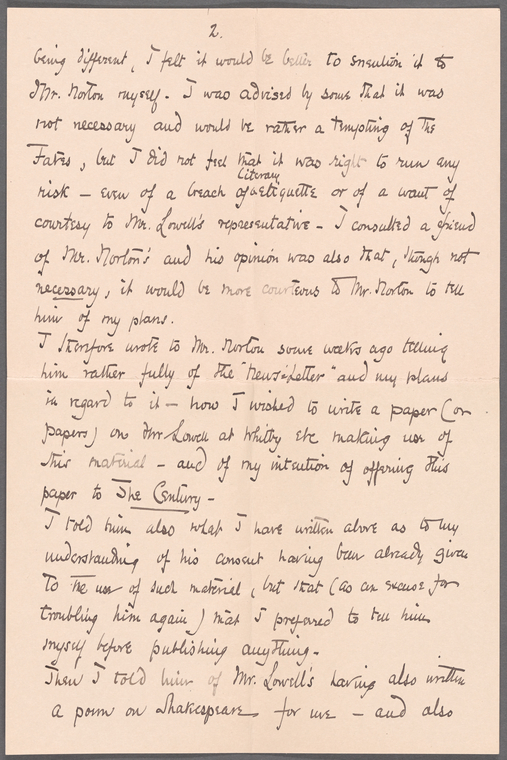 2.
being different, I felt it would be better to mention it to
Mr. Norton myself. I was advised by some that it was
not necessary and would be rather a tempting of the
Fates, but I did not feel that it was right to run any
Literary
risk – even of a breach of etiquette or of a want of
courtesy to Mr. Lowell's representative – I consulted a friend
of Mr. Norton's and his opinion was also that, though not
necessary, it would be more courteous to Mr. Norton to tell
him of my plans.
I therefore wrote to Mr. Norton some weeks ago telling
him rather fully of the "News-Letter" and my plans
in regard to it – how I wished to write a paper (or
papers) on Mr Lowell at Whitby etc making use of
this material – and of my intention of offering this
paper to The Century –
I told him also what I have written above as to my
understanding of his consent having been already given
to the use of such material, but that (as an excuse for
troubling him again) that I preferred to tell him
myself before publishing anything.
Then I told him of Mr. Lowell's having also written
a poem on Shakespeare for me – and also